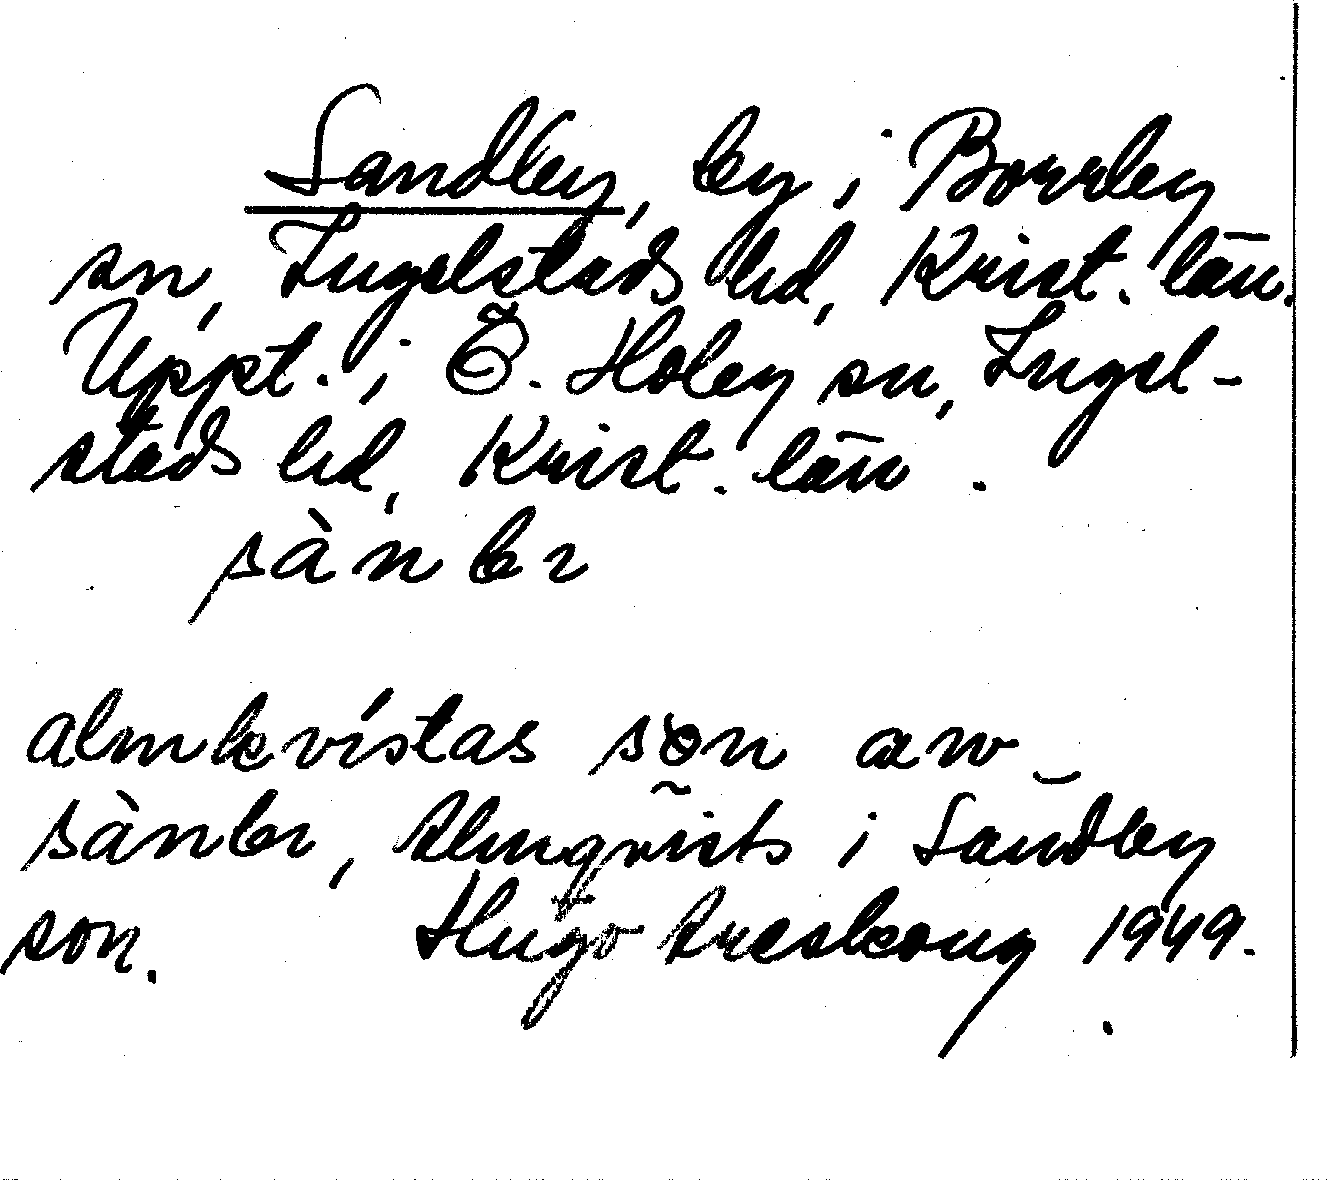 Sandby, by i Borrby
sn, Ingelstads hd, Krist. län.
Uppt. i Ö. Hoby sn, Ingel-
stads hd, Krist. län.
sànbı
almkvístas son aw
sànbı, Almqvists i Sandby
son. Hugo Areskoug 1949.